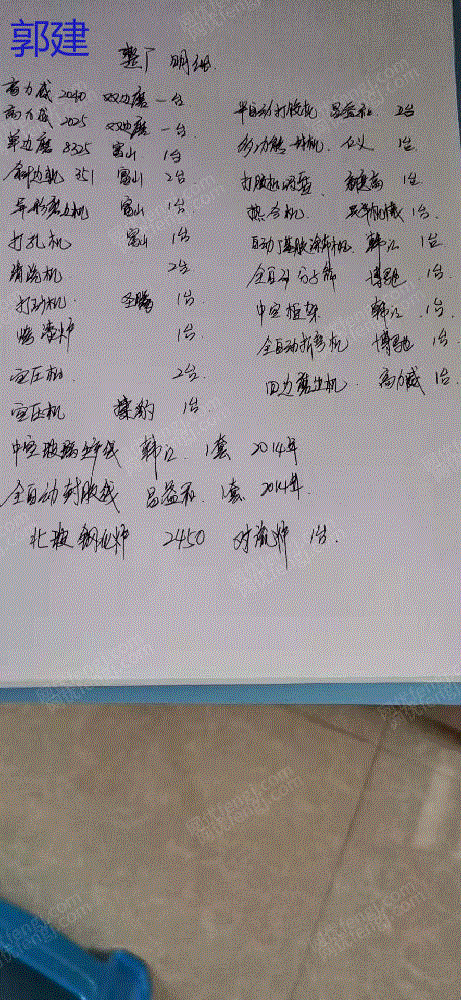 郭建
整厂明细
高力威 2040 双边磨 一台
高力威 2025 双边磨 一台
单边磨 8325 富山 1台
斜边机 351 富山 2台
异形磨边机 富山 1台
打孔机 富山 1台
清洗机 2台
打砂机 1台
1台
空压机 2台
空压机 1台
半自动打胶机 昌益和 2台
多功能一材机 1台
打胶机 1台
热合机 1台
自动丁基胶涂布机 韩江 1台
全自动分子筛 博驰 1台
中空框架 韩江 1台
全自动折弯机 博驰 1台
四边磨边机 高力威 1台
中空玻璃生产线 韩江 1套 2014年
全自动封胶线 昌益和 1套 2014年
北玻钢化炉 2450 对流炉 1台